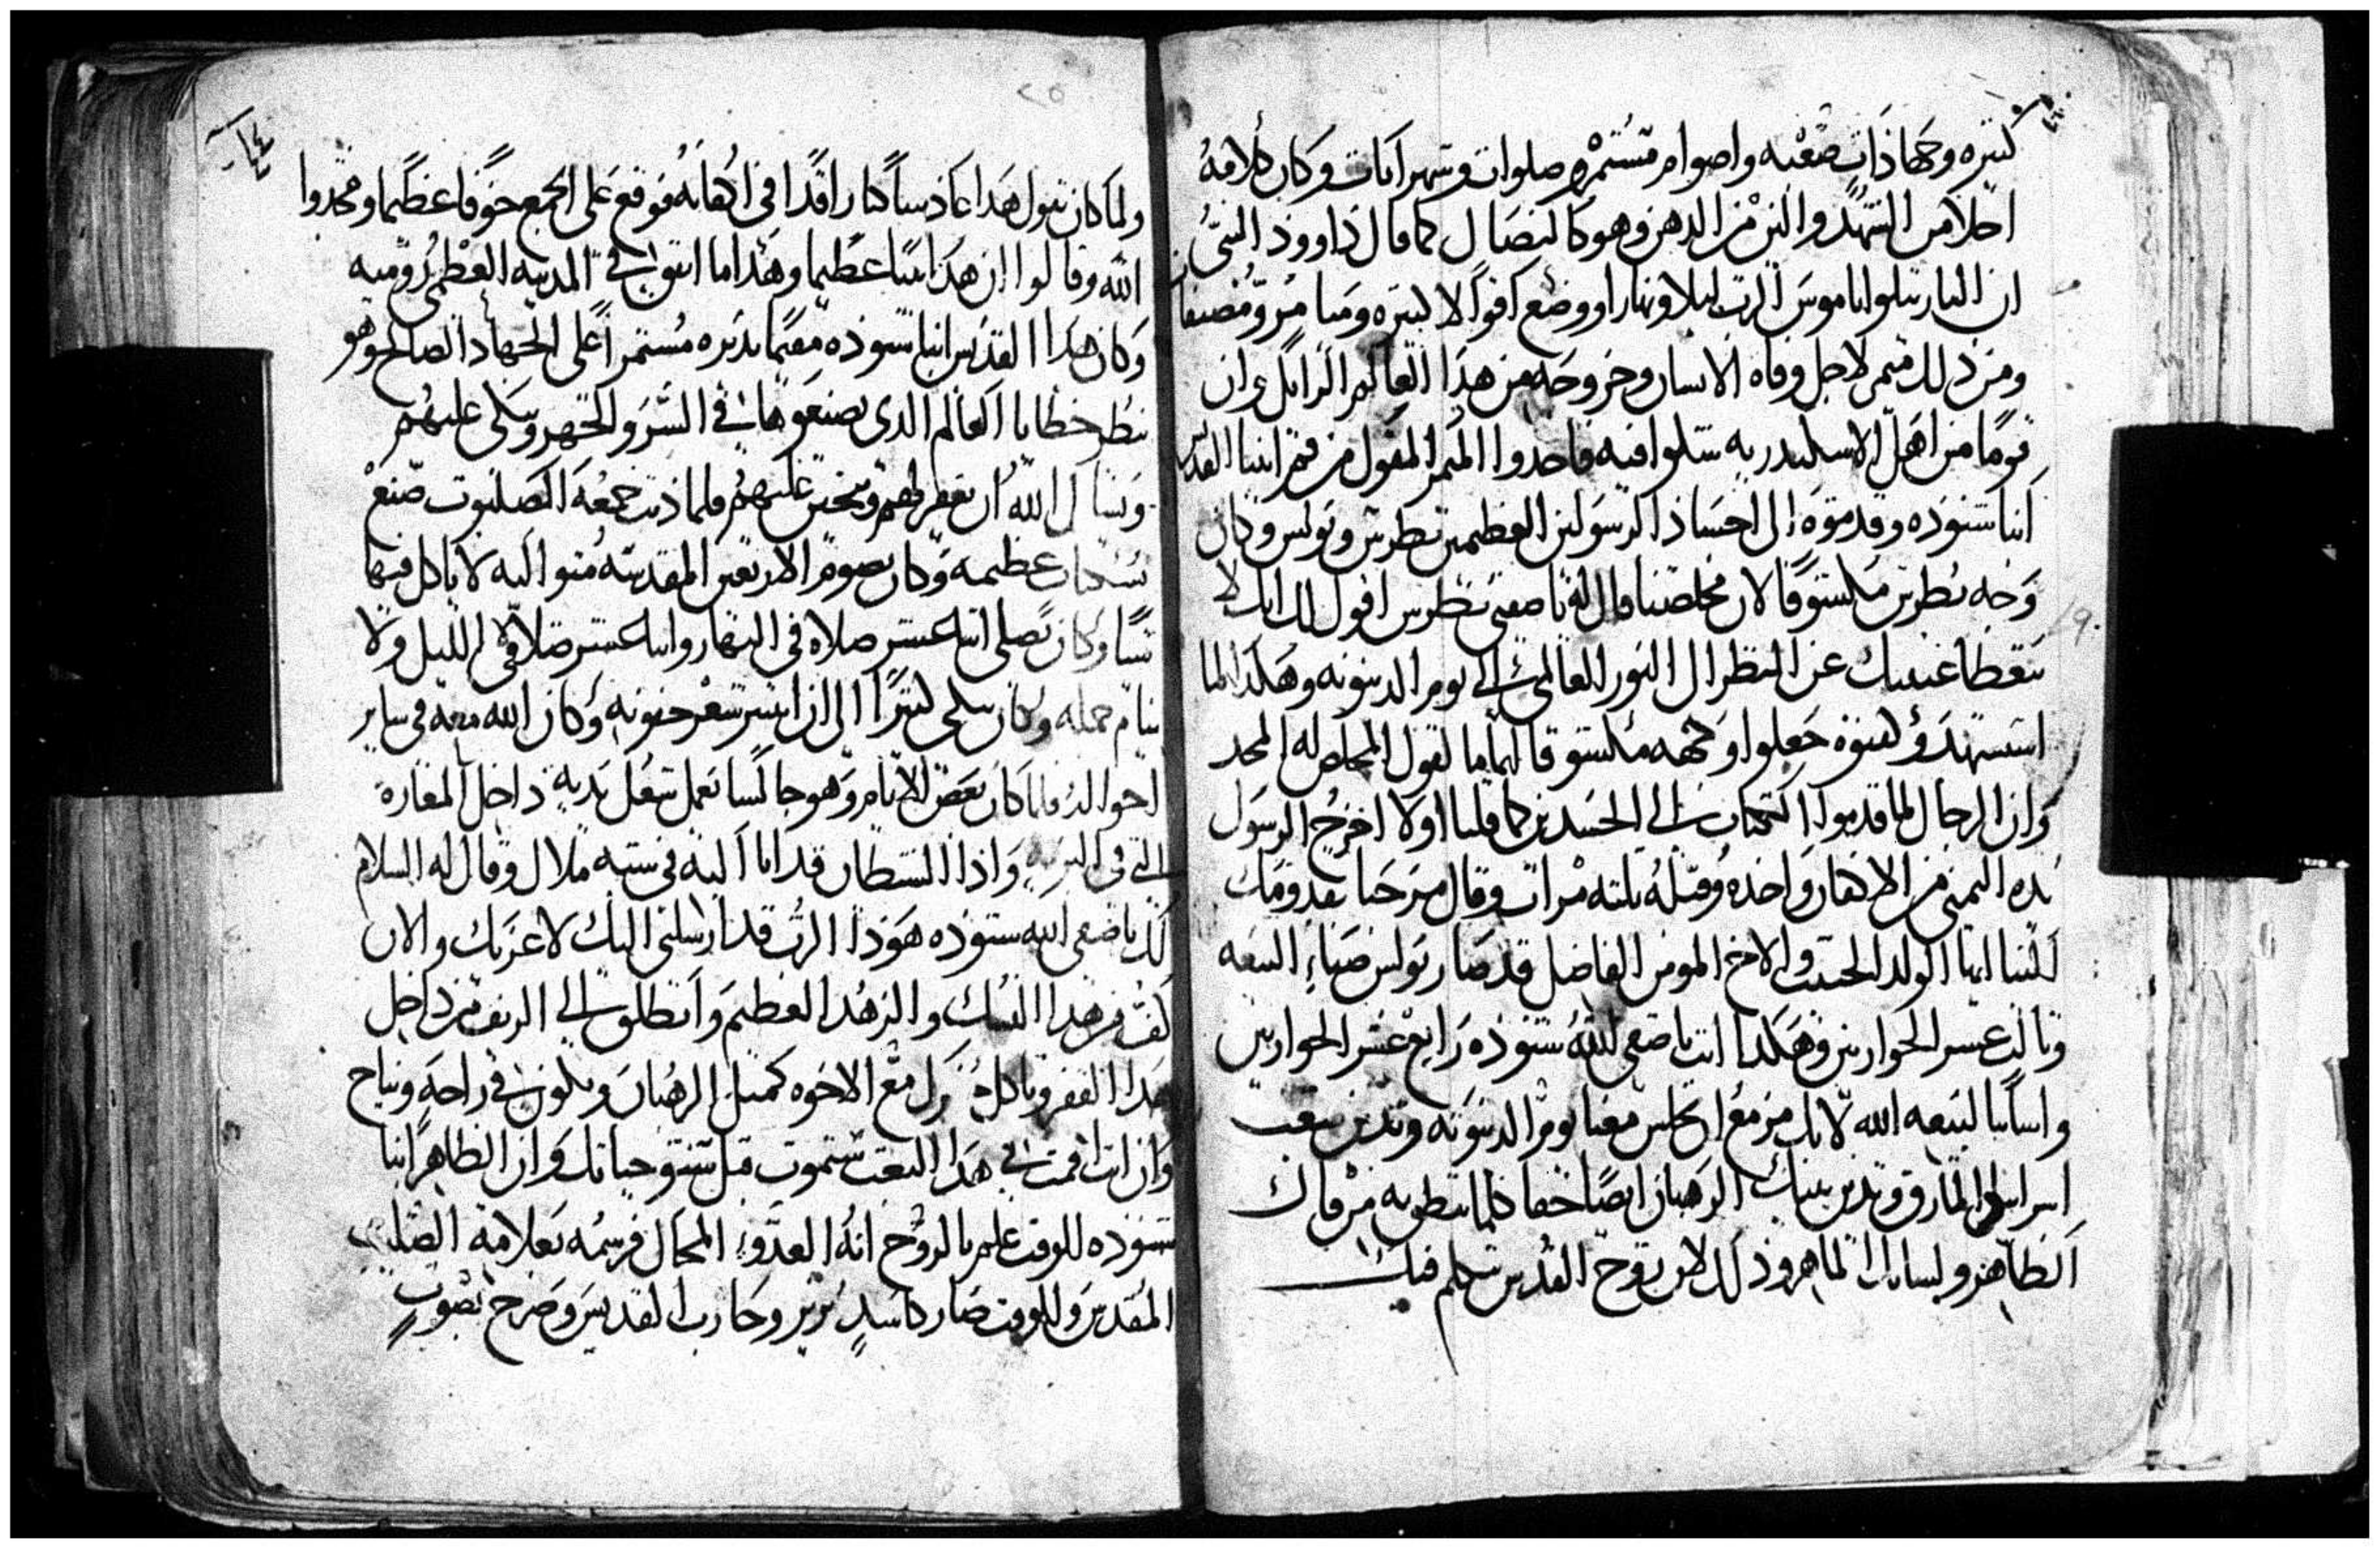 كثيره وجهادات صعبه واصوام مستمره وصلوات وسهر اناث وكان كلامه
احلا من الشهد والين من الدهن وهو كالنصال كما قال داوود النبى
ان البار يتلوا ناموس الرب ليلا ونهار ووضع اقوالا كثيره وميامر ومصنفات
ومن ذلك ميمر لاجل وفاه الانسان وخروجه من هدا العالم الزايل وان
قوما من اهل الاسكندريه شكوا فيه فاخدوا الميمر المقول من فم ابينا القديس
انبا شنوده وقدموه الى اجساد الرسولين العظيمين بطرس وبولس وكان
وجه بطرس مكشوفا لان مخلصنا قال له يا صفيى بطرس اقول لك انك لا
تغطا عينيك عن النظر الى النور العالمى الى يوم الدينونه وهكدا لما
استشهد وكفنوه جعلوا وجهه مكشوفا لتمام قول المخلص له المجد
وان الرجال لما قدموا الكتاب الى الجسدين كما قلنا اولا اخرج الرسول
يده اليمنى من الاكفان واخده وقبله تلته مرات وقال مرحبا بقدومك
الينا ايها الولد الحبيب والاخ المومن الفاضل قد صار بولس ضياء البيعه
وتالت عشر الحواريين وهكدا انت يا صفى الله شنوده رابع عشر الحواريين
واساسا لبيعه الله لانك مزمع ان تجلس معنا يوم الدينونه وتدين شعب
اسراييل المارق وتدين بنيك الرهبان ايضا حقا كلما تنطق به من فاك
الطاهر ولسانك الماهر ودلك لان روح القدس تتكلم فيك
ولما كان يقول هدا عاد نسا كا راقدا فى اكفانه فوقع على الجمع خوفا عظيما ومجدوا
الله وقالوا ان هدا انسا عظيما وهدا ما اتفق فى المدينه العظمى روميه
وكان هدا القديس انبا شنوده مقيما بديره مستمرا على الجهاد الصالح وهو
ينظر خطايا العالم الدى يصنعوها فى السر والجهر ويبكى عليهم
ويسال الله ان يغفر لهم ويتحنن عليهم فلما دنت جمعه الصلبوت صنع
نسكيات عظيمه وكان يصوم الاربعين المقدسه متواليه لا ياكل فيها
شيا وكان يصلى اتنا عشر صلاه فى النهار واتنا عشر صلاه فى الليل ولا
ينام جمله وكان يبكى كثيرا الى ان انتتر شعر جفونه وكان الله معه فى ساير
احواله ولما كان بعض الايام وهو جالسا يعمل شغل يديه داخل المغاره
التى فى البريه واذا الشيطان قد اتا اليه فى شبه ملاك وقال له السلام
لك يا صفى الله شنوده هودا الرب قد ارسلنى اليك لاعزيك والان
كف من هدا النسك والزهد العظيم وانطلق الى الريف من داخل
هدا القفر وتاكل خبزك مع الاخوه كمتل الرهبان وتكون فى راحه ونياح
وان انت اقمت فى هدا التعب ستموت قبل تستوفى حياتك وان الطاهر انبا
شنوده للوقت علم بالروح انه العدو المحال فرشمه بعلامه الصليب
المقدس وللوقت صار كاسد يزير وحارب القديس وصرخ بصوت